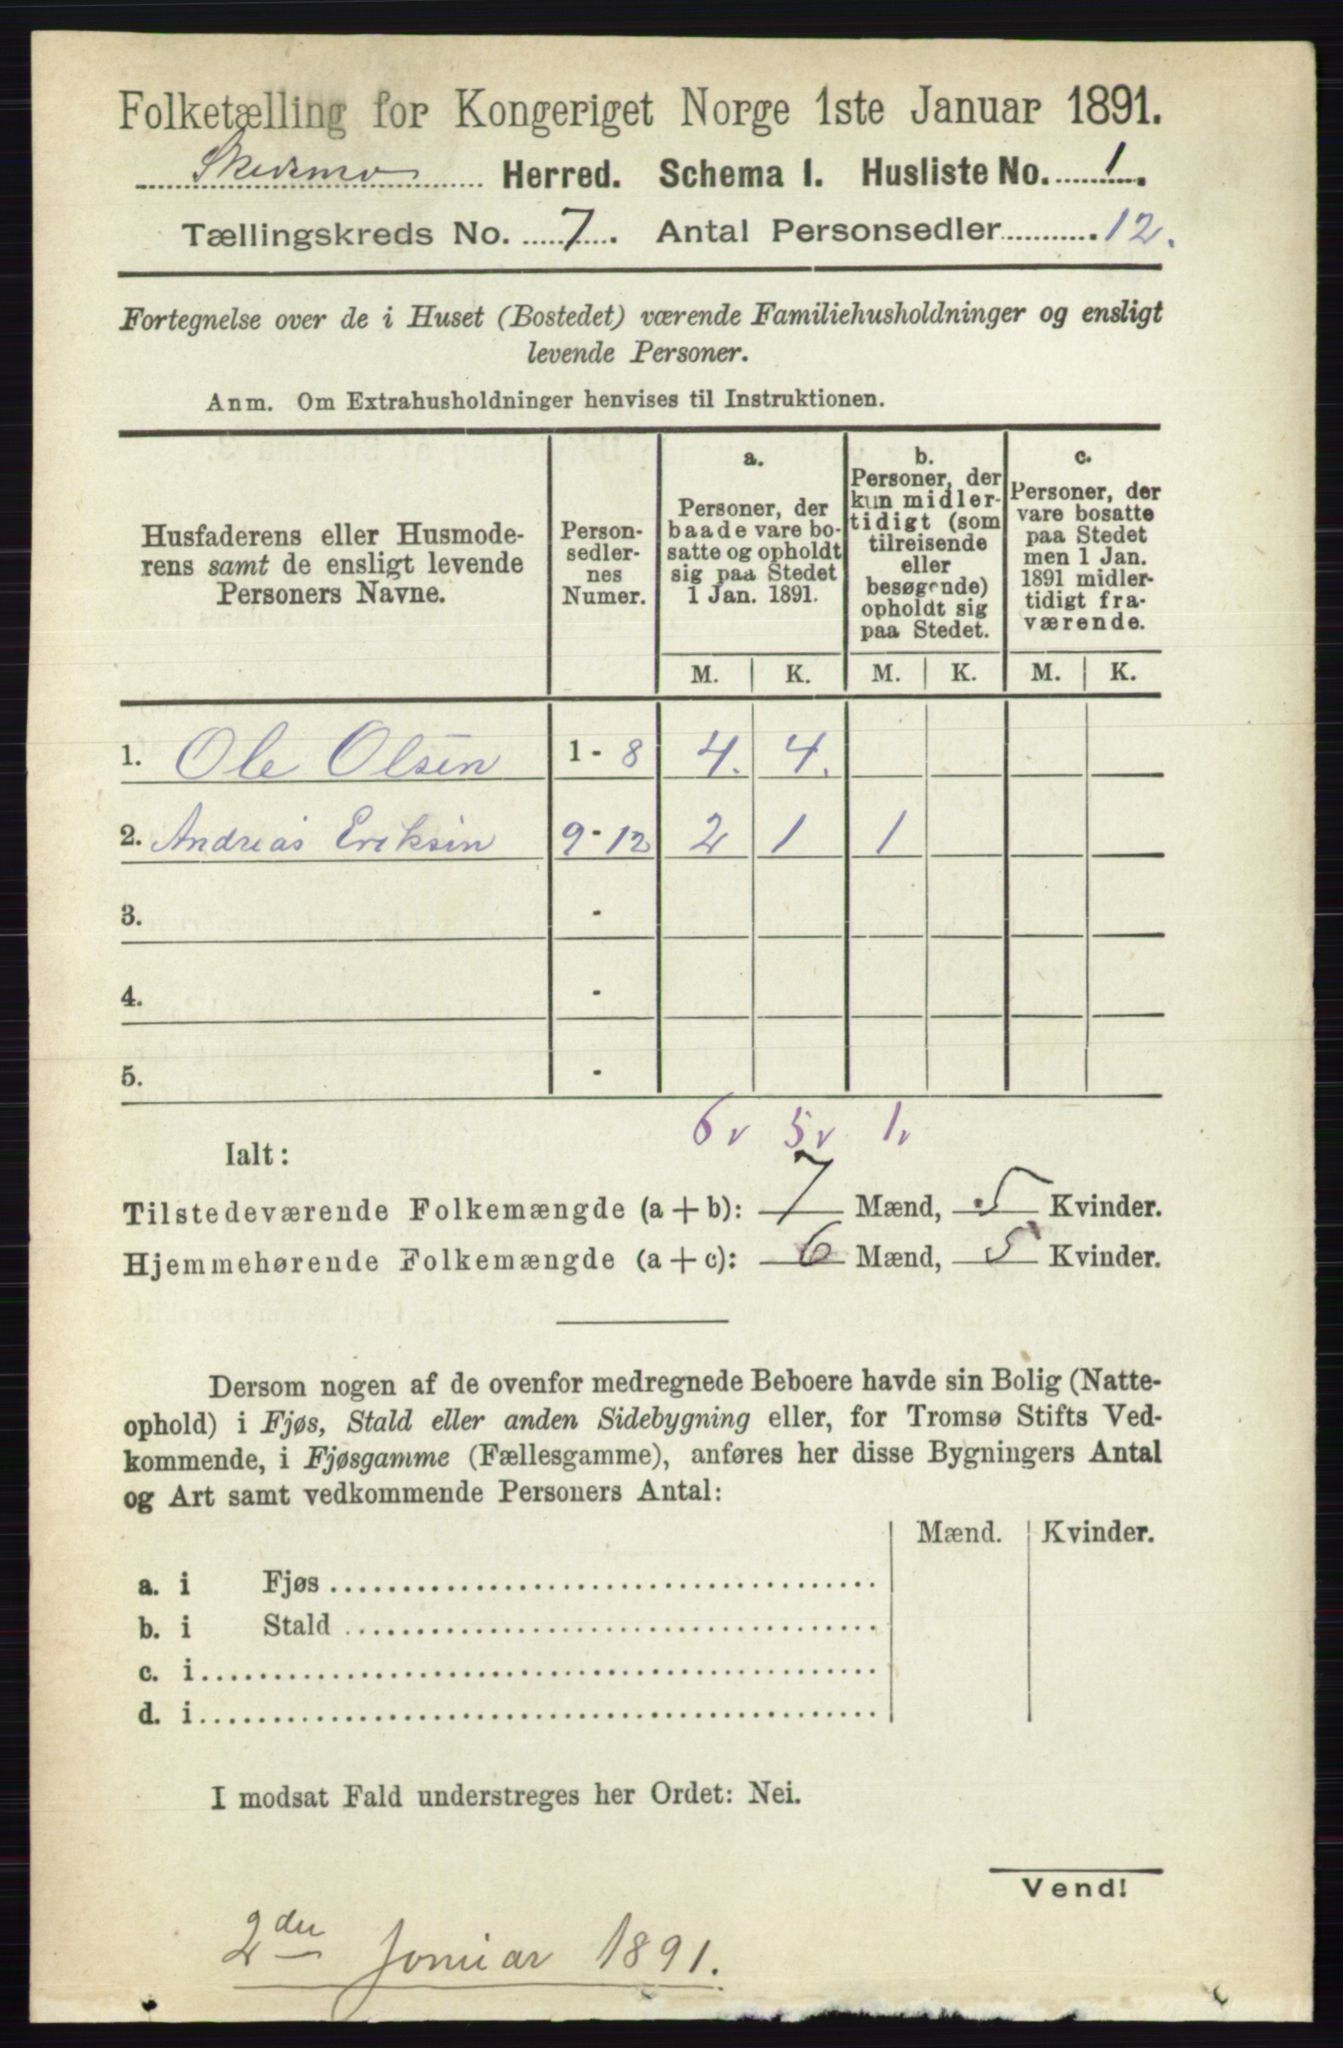 Folketælling for Kongeriget Norge 1ste Januar 1891.
Skedsmo Herred. Schema 1. Husliste No. 1.
Tællingskreds No. 7. Antal Personsedler 12.
Fortegnelse over de i Huset (Bostedet) værende Familiehusholdninger og ensligt
levende Personer.
Anm. Om Extrahusholdninger henvises til Instruktionen.
Husfaderens eller Husmode-
rens samt de ensligt levende
Personers Navne.
Person-
sedler-
nes
Numer.
a.
Personer, der
baade vare bo-
satte og opholdt
sig paa Stedet
1 Jan. 1891.
b.
Personer, der
kun midler-
tidigt (som
tilreisende
eller
besøgende)
opholdt sig
paa Stedet.
c.
Personer, der
vare bosatte
paa Stedet
men 1 Jan.
1891 midler-
tidigt fra-
værende.
M. K. M. K. M. K.
1. Ole Olsen 1 - 8 4. 4.
2. Andreas Eriksen 9 - 12 2 1 1
3. -
4. -
5. -
6 v 5 v 1 v
Ialt:
Tilstedeværende Folkemængde (a + b): 7 Mænd, 5 Kvinder.
Hjemmehørende Folkemængde (a + c): 6 Mænd, 5 Kvinder.
Dersom nogen af de ovenfor medregnede Beboere havde sin Bolig (Natte-
ophold) i Fjøs, Stald eller anden Sidebygning eller, for Tromsø Stifts Ved-
kommende, i Fjøsgamme (Fællesgamme), anføres her disse Bygningers Antal
og Art samt vedkommende Personers Antal:
Mænd. Kvinder.
a. i Fjøs
b. i Stald
c. i
d. i
I modsat Fald understreges her Ordet: Nei.
Vend!
2den Januar 1891.